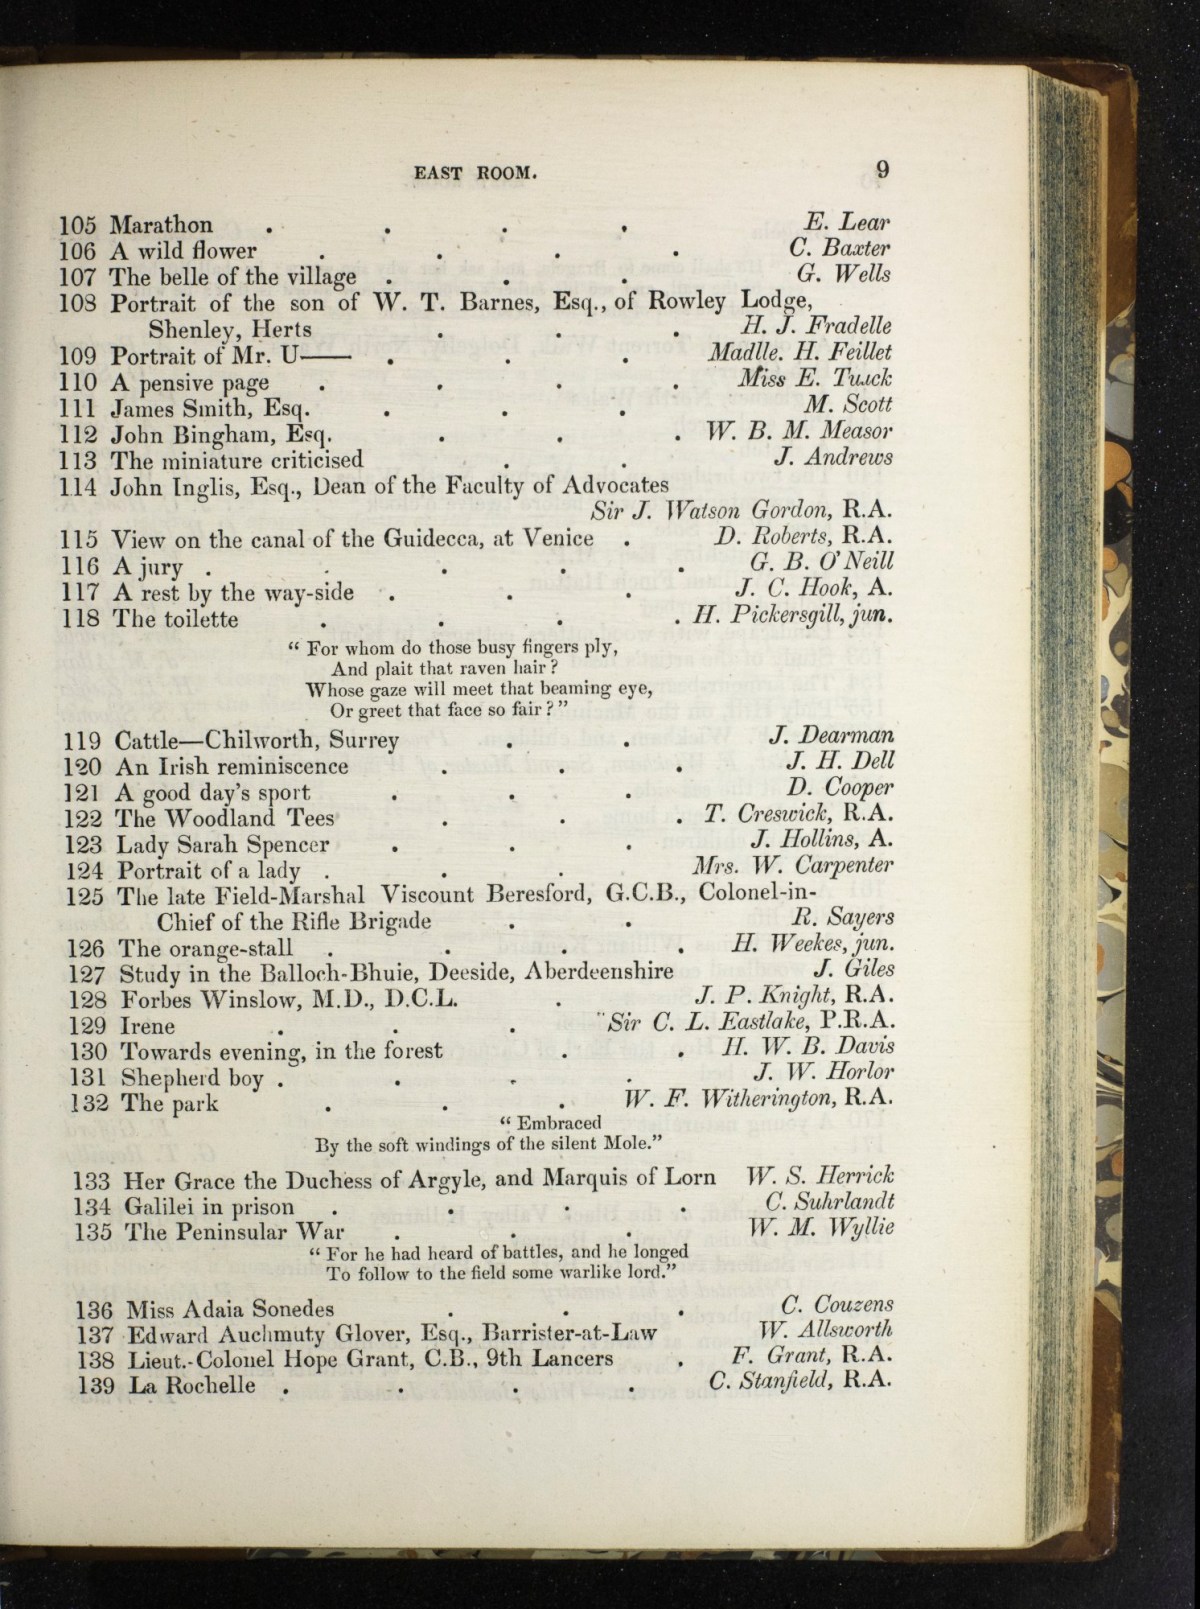 EAST ROOM. 9
105 Marathon . . . . E. Lear
106 A wild flower . . . . C. Baxter
107 The belle of the village . . . G. Wells
108 Portrait of the son of W. T. Barnes, Esq., of Rowley Lodge,
Shenley, Herts . . . H. J. Fradelle
109 Portrait of Mr. U—— . . . Madlle. H. Feillet
110 A pensive page . . . . Miss E. Tuack
111 James Smith, Esq. . . . M. Scott
112 John Bingham, Esq. . . . W. B. M. Measor
113 The miniature criticised . . J. Andrews
114 John Inglis, Esq., Dean of the Faculty of Advocates
Sir J. Watson Gordon, R.A.
115 View on the canal of the Guidecca, at Venice . D. Roberts, R.A.
116 A jury . . . . . G. B. O'Neill
117 A rest by the way-side . . . J. C. Hook, A.
118 The toilette . . . . H. Pickersgill, jun.
“ For whom do those busy fingers ply,
And plait that raven hair ?
Whose gaze will meet that beaming eye,
Or greet that face so fair ? ”
119 Cattle—Chilworth, Surrey . . J. Dearman
120 An Irish reminiscence . . . J. H. Dell
121 A good day's sport . . . D. Cooper
122 The Woodland Tees . . . T. Creswick, R.A.
123 Lady Sarah Spencer . . . J. Hollins, A.
124 Portrait of a lady . . . Mrs. W. Carpenter
125 The late Field-Marshal Viscount Beresford, G.C.B., Colonel-in-
Chief of the Rifle Brigade . . R. Sayers
126 The orange-stall . . . . H. Weekes, jun.
127 Study in the Balloch-Bhuie, Deeside, Aberdeenshire J. Giles
128 Forbes Winslow, M.D., D.C.L. . J. P. Knight, R.A.
129 Irene . . . Sir C. L. Eastlake, P.R.A.
130 Towards evening, in the forest . . H. W. B. Davis
131 Shepherd boy . . . . J. W. Horlor
132 The park . . . W. F. Witherington, R.A.
“ Embraced
By the soft windings of the silent Mole.”
133 Her Grace the Duchess of Argyle, and Marquis of Lorn W. S. Herrick
134 Galilei in prison . . . . C. Suhrlandt
135 The Peninsular War . . . W. M. Wyllie
“ For he had heard of battles, and he longed
To follow to the field some warlike lord.”
136 Miss Adaia Sonedes . . . C. Couzens
137 Edward Auchmuty Glover, Esq., Barrister-at-Law W. Allsworth
138 Lieut.-Colonel Hope Grant, C.B., 9th Lancers . F. Grant, R.A.
139 La Rochelle . . . . C. Stanfield, R.A.